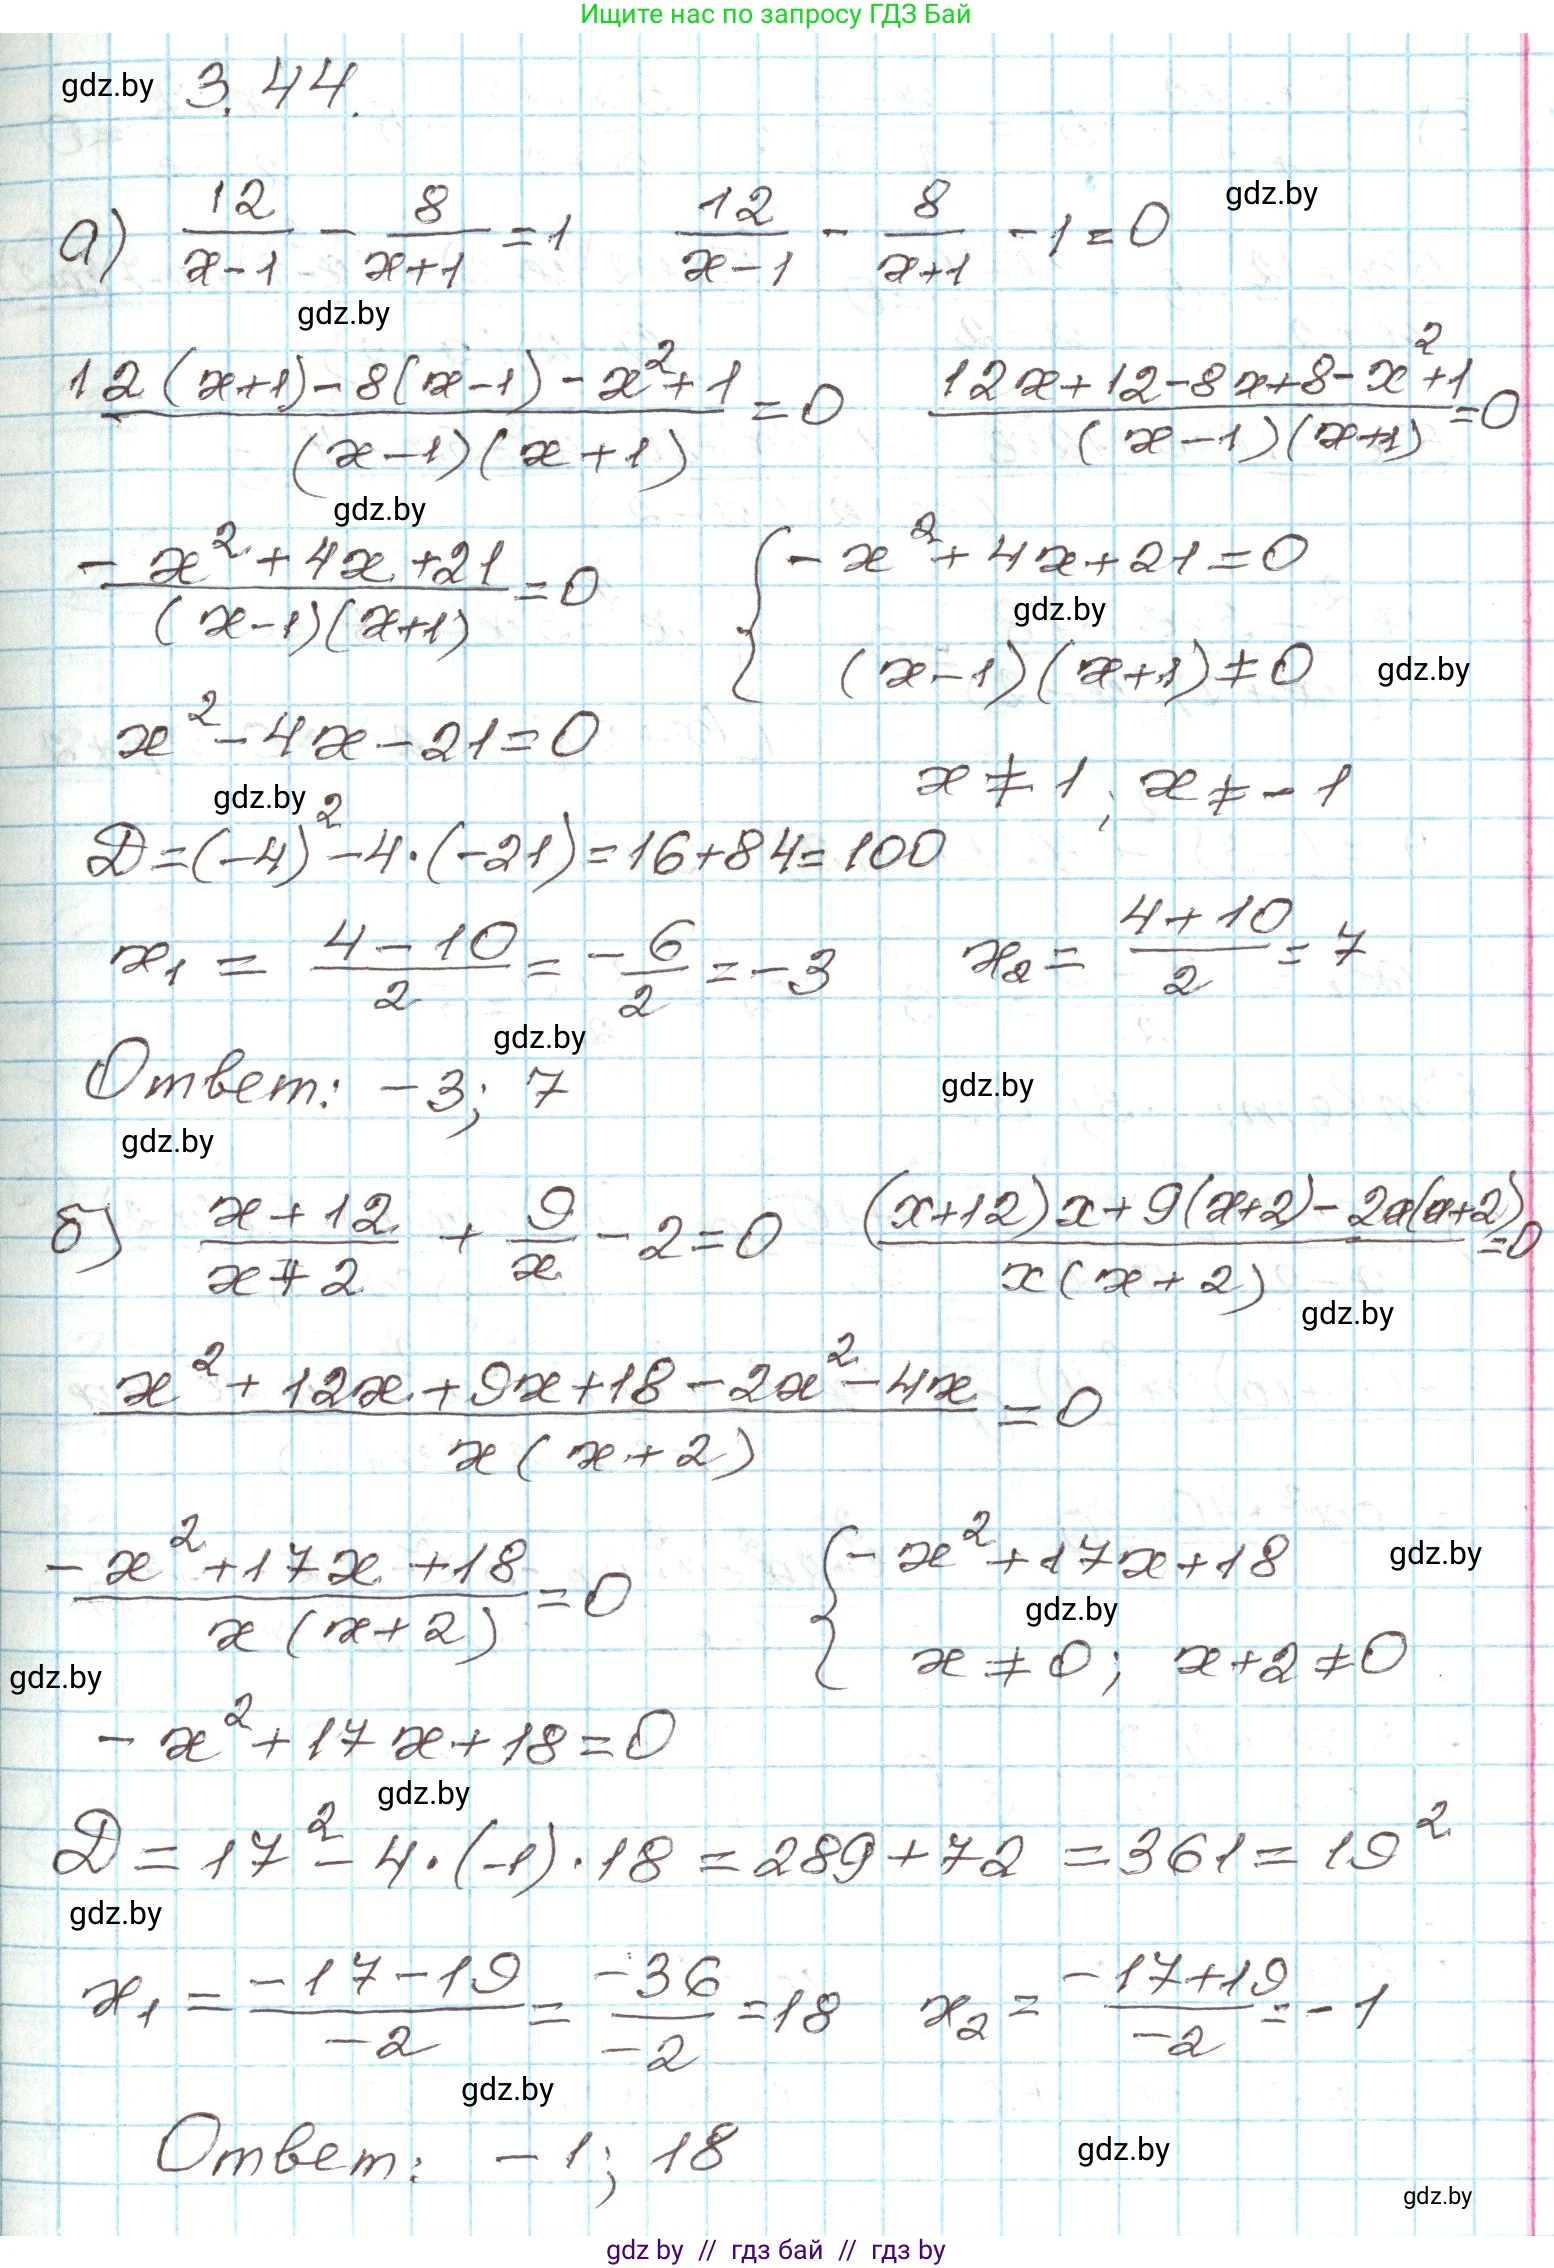 Ищите нас по запросу ГДЗ Бай
gdz.by 3.44. gdz.by
а) 12/(x-1) - 8/(x+1) = 1   12/(x-1) - 8/(x+1) - 1 = 0
gdz.by
(12(x+1) - 8(x-1) - x² + 1)/((x-1)(x+1)) = 0   (12x + 12 - 8x + 8 - x² + 1)/((x-1)(x+1)) = 0
gdz.by
(-x² + 4x + 21)/((x-1)(x+1)) = 0   { -x² + 4x + 21 = 0
gdz.by
(x-1)(x+1) ≠ 0 gdz.by
x² - 4x - 21 = 0
x ≠ 1; x ≠ -1
gdz.by
D = (-4)² - 4·(-21) = 16 + 84 = 100
x₁ = (4-10)/2 = -6/2 = -3   x₂ = (4+10)/2 = 7
gdz.by
Ответ: -3; 7 gdz.by
gdz.by
б) (x+12)/(x+2) + 9/x - 2 = 0   ((x+12)x + 9(x+2) - 2x(x+2))/(x(x+2)) = 0
gdz.by
(x² + 12x + 9x + 18 - 2x² - 4x)/(x(x+2)) = 0
(-x² + 17x + 18)/(x(x+2)) = 0   { -x² + 17x + 18 gdz.by
gdz.by
x ≠ 0; x + 2 ≠ 0
gdz.by
-x² + 17x + 18 = 0
gdz.by
D = 17² - 4·(-1)·18 = 289 + 72 = 361 = 19²
gdz.by
x₁ = (-17-19)/-2 = -36/-2 = 18   x₂ = (-17+19)/-2 = -1
gdz.by
Ответ: -1; 18 gdz.by
gdz.by
gdz by // гдз бай // гдз by